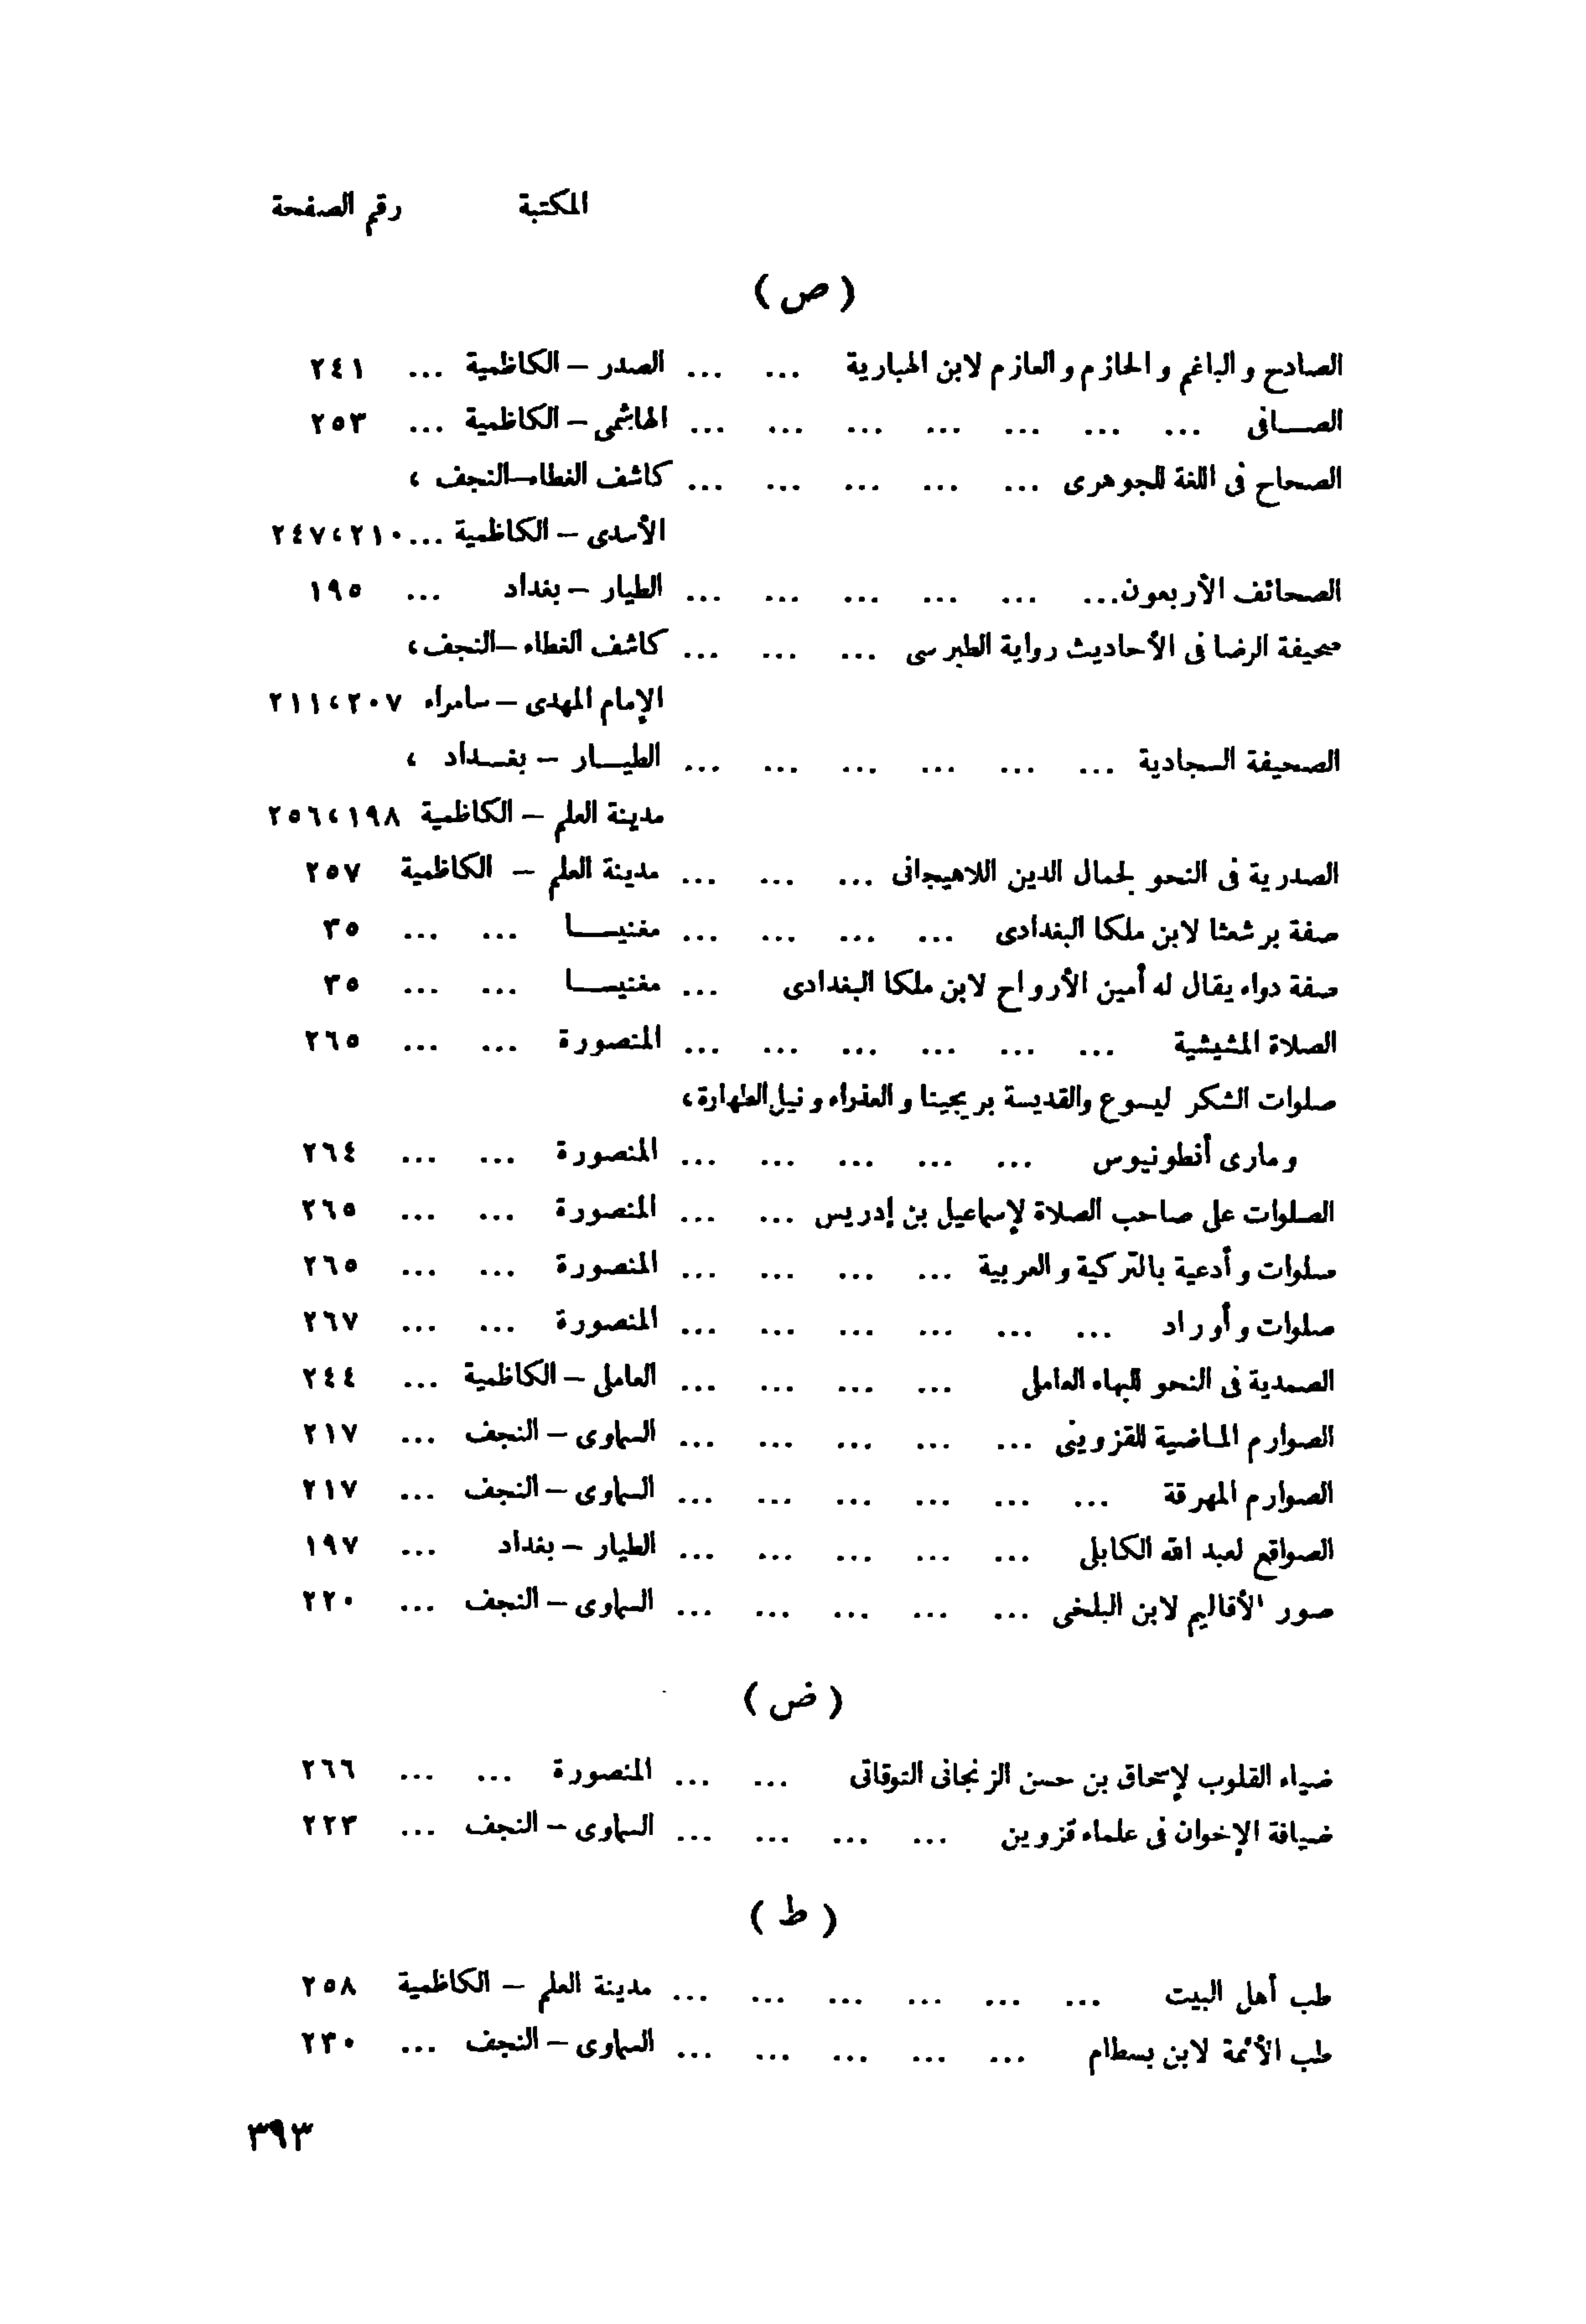 المكتبة رقم الصفحة
( ص )
الصادح والباغم والحازم والعازم لابن الهبارية ... ... الصدر – الكاظمية ... ٢٤١
الصـافى ... ... ... ... ... ... ... الهاشمى – الكاظمية ... ٢٥٣
الصحاح فى اللغة للجوهرى ... ... ... ... ... كاشف الغطاء–النجف ،
الأسدى – الكاظمية ... ٢١٠،٢٤٧
الصحائف الأربعون... ... ... ... ... ... الطيار – بغداد ... ١٩٥
صحيفة الرضا فى الأحاديث رواية الطبرسى ... ... ... كاشف الغطاء –النجف،
الإمام المهدى – سامراء ٢٠٧،٢١١
الصحيفة السجادية ... ... ... ... ... ... الطيـار – بغـداد ،
مدينة العلم – الكاظمية ١٩٨،٢٥٦
الصدرية فى النحو لجمال الدين اللاهيجانى ... ... ... مدينة العلم – الكاظمية ٢٥٧
صفة برشعثا لابن ملكا البغدادى ... ... ... ... مغنيسـا ... ... ٣٥
صفة دواء يقال له أمين الأرواح لابن ملكا البغدادى ... مغنيسـا ... ... ٣٥
الصلاة المشيشية ... ... ... ... ... ... المنصورة ... ... ٢٦٥
صلوات الشكر ليسوع والقديسة بريجيتا والعذراء ونيل الطهارة،
ومارى أنطونيوس ... ... ... ... ... المنصورة ... ... ٢٦٤
الصلوات على صاحب الصلاة لإسماعيل بن إدريس ... ... المنصورة ... ... ٢٦٥
صلوات وأدعية بالتركية والعربية ... ... ... ... المنصورة ... ... ٢٦٥
صلوات وأوراد ... ... ... ... ... ... المنصورة ... ... ٢٦٧
الصمدية فى النحو للبهاء العاملى ... ... ... ... العاملى – الكاظمية ... ٢٤٤
الصوارم الماضية للقزوينى ... ... ... ... ... السماوى – النجف ... ٢١٧
الصوارم المهرقة ... ... ... ... ... ... السماوى – النجف ... ٢١٧
الصواقع لعبد الله الكابلى ... ... ... ... ... الطيار – بغداد ... ١٩٧
صور الأقاليم لابن البلخى ... ... ... ... ... السماوى – النجف ... ٢٢٠
( ض )
ضياء القلوب لإسحاق بن حسن الزنجانى التوقاتى ... ... المنصورة ... ... ٢٦٦
ضيافة الإخوان فى علماء قزوين ... ... ... ... السماوى – النجف ... ٢٢٣
( ط )
طب أهل البيت ... ... ... ... ... ... مدينة العلم – الكاظمية ٢٥٨
طب الأئمة لابن بسطام ... ... ... ... ... السماوى – النجف ... ٢٣٠
٣٩٣